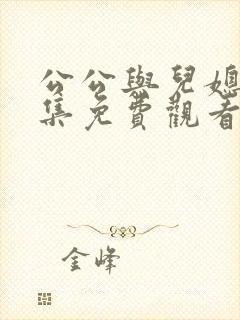 公公與兒媳
集免費觀看
金峰